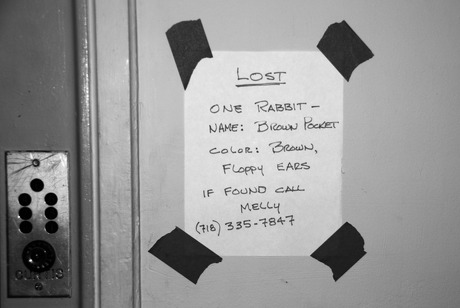 LOST
ONE RABBIT –
NAME: BROWN POCKET
COLOR: BROWN,
FLOPPY EARS
IF FOUND CALL
MELLY
(718) 335-7847
CURTIS